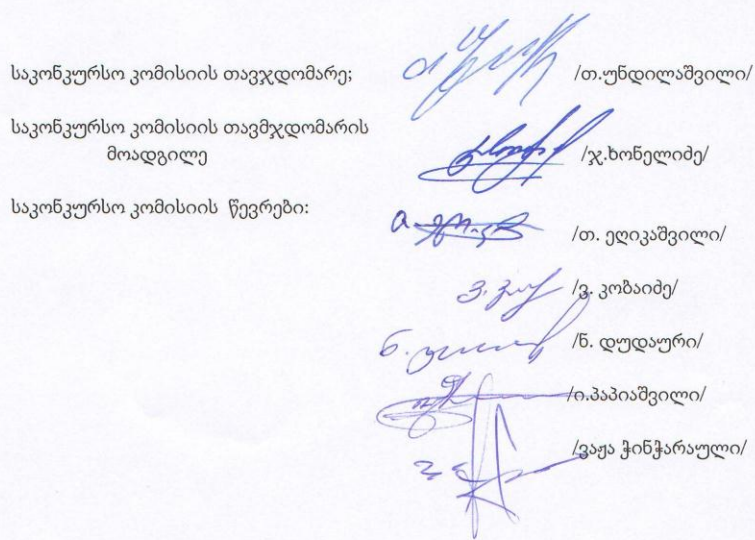 საკონკურსო კომისიის თავჯდომარე; /თ.უნდილაშვილი/
საკონკურსო კომისიის თავმჯდომარის
მოადგილე /ჯ.ხონელიძე/
საკონკურსო კომისიის წევრები:
/თ. ეღიკაშვილი/
/ვ. კობაიძე/
/ნ. დუდაური/
/ი.პაპიაშვილი/
/ვაჟა ჭინჭარაული/